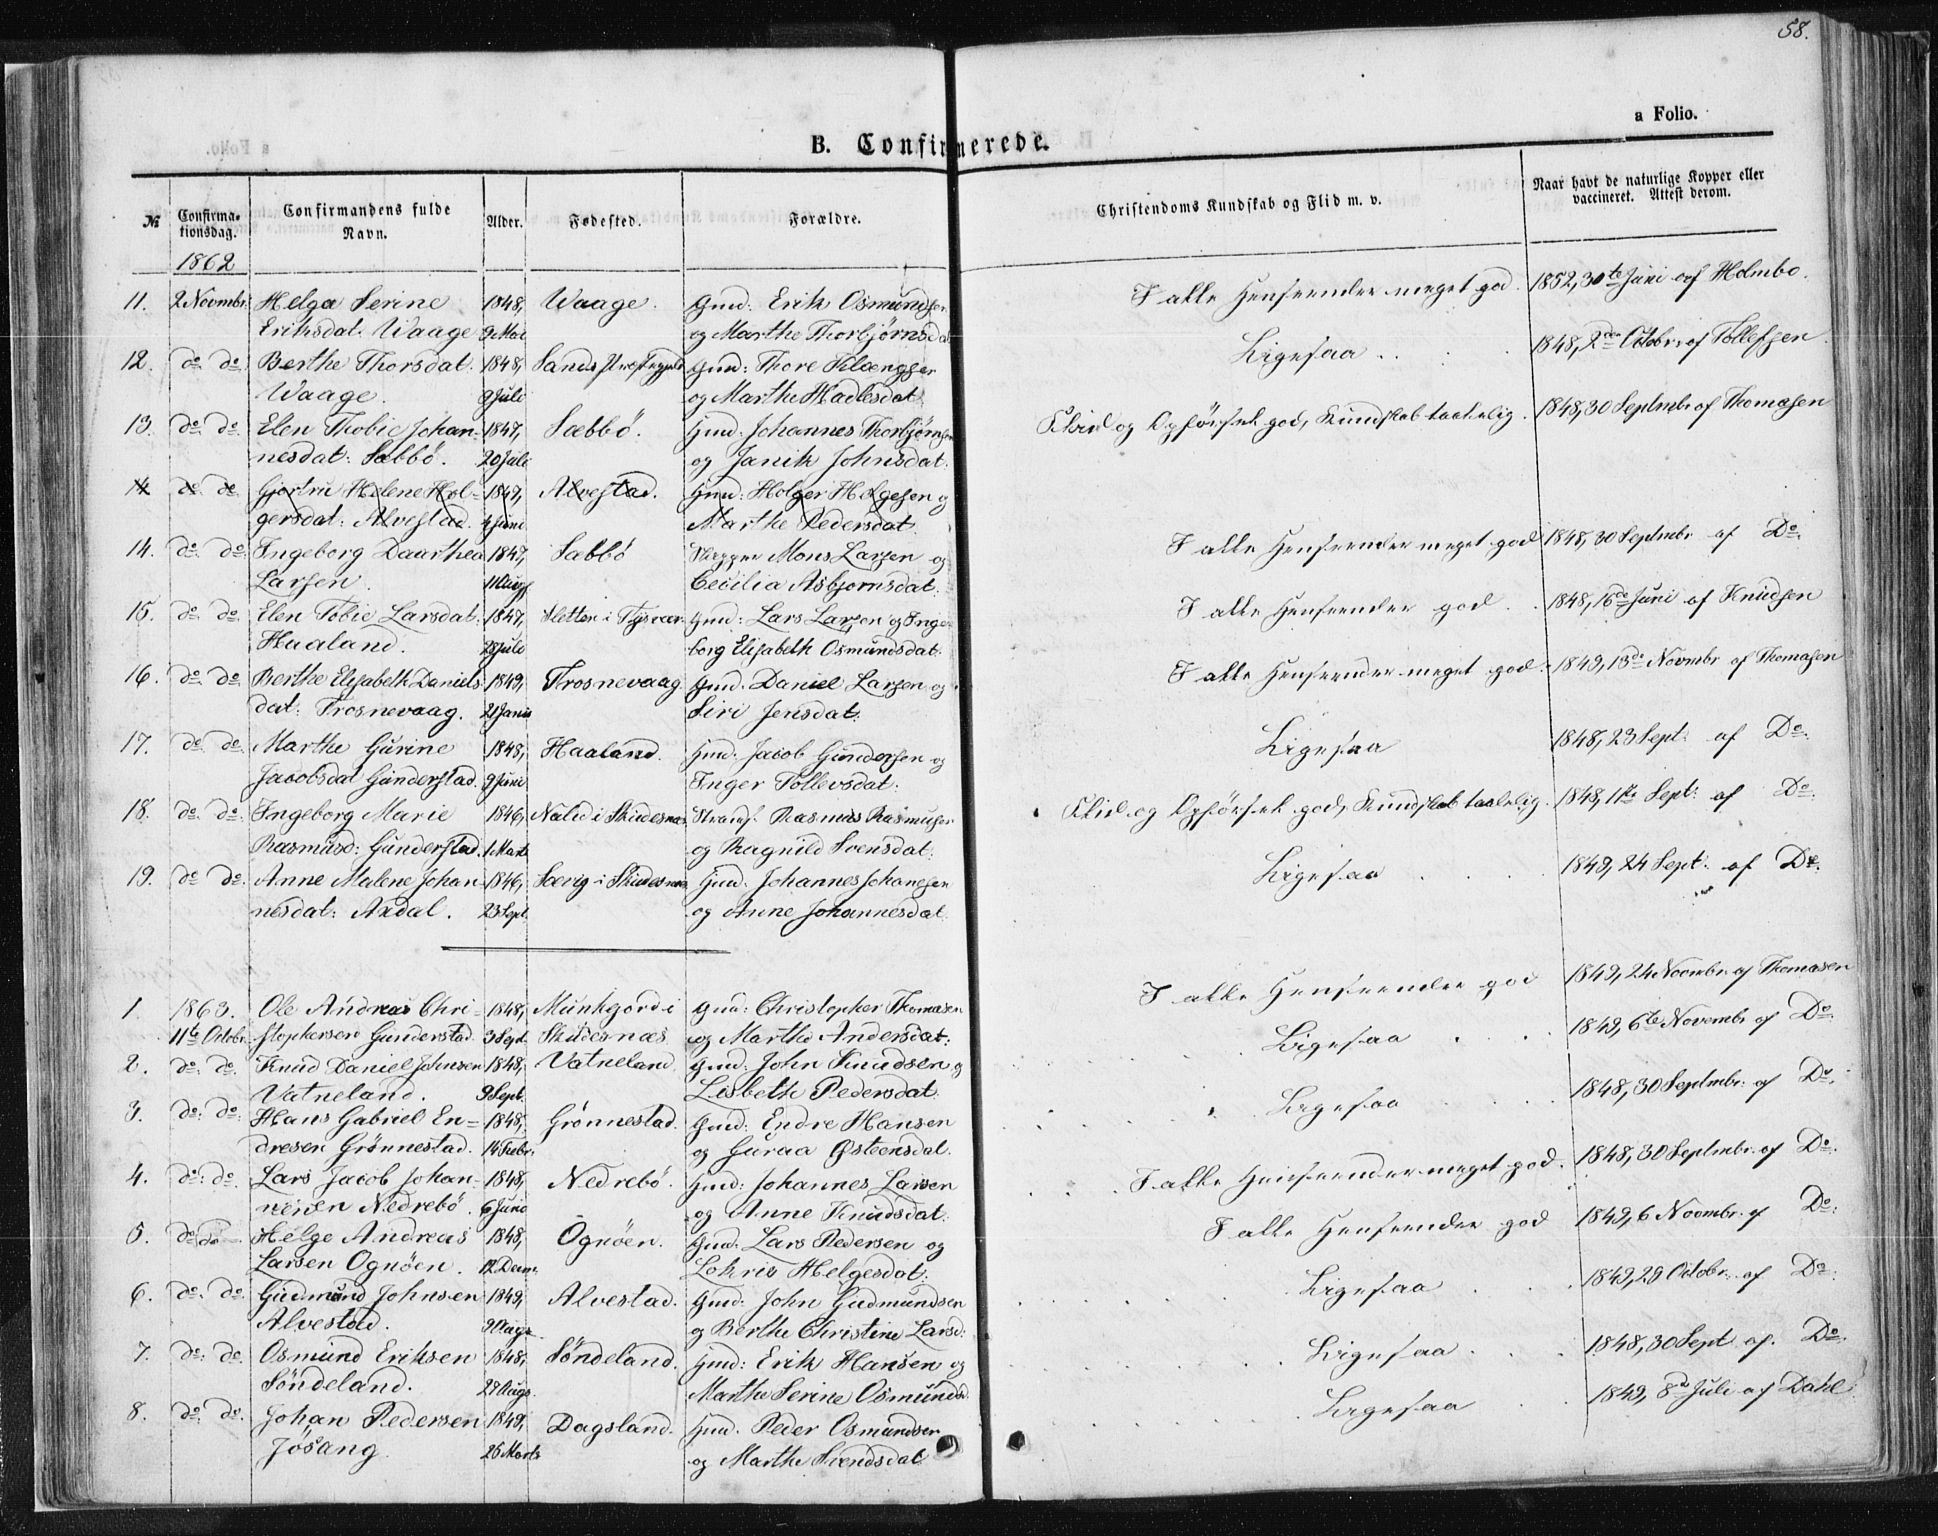 58.
a Folio.
B. Confirmerede.
№ Confirmationsdag. Confirmandens fulde Navn. Alder. Fødested. Forældre. Christendoms Kundskab og Flid m. v. Naar havt de naturlige Kopper eller vaccineret. Attest derom.
1862
11. 2 Novmbr. Helga Serine 1848, Waage. Gmd: Erik Osmundsen I alle Henseender meget god. 1852, 30te Juni af Holmbo.
Eriksdat. Waage 9 Mai og Marthe Thorbjørnsdat
12. do do Berthe Thorsdat. 1848, Sands Gmd: Thore Ligesaa 1848, 2den Octobr. af Tollefsen
Waage. 9 Juli og Marthe Hadlesdat.
13. do do Elen Thobie Johan- 1847, Sæbbö. Gmd: Johannes Thorbjørnsen Flid og Opförsel god, Kundskab taalelig. 1848, 30 Septmbr af Thomasen
nesdat: Sæbbö. 20 Juli og Janik Johnsdat.
14 do do Gjertru Helene Hol- 1849, Alvestad. Gmd: Holger Holgesen og
gersdat: Alvestad. Juni Marthe Pedersdat.
14. do do Ingeborg Daarthea 1847, Sæbbö Mons Larsen og I alle Henseender meget god 1848, 30 Septmbr af Do.
Larsen. 11 Aug Cecilia Asbjørnsdat.
15. do do Elen Tobie Larsdat. 1847, Sletten i Tysvær Gmd: Lars Larsen og Inge- I alle Henseender god. 1848, 16de Juni af Knudsen
Haaland. Juli borg Elisabeth Osmundsdat.
16. do do Berthe Elisabeth Daniels- 1849, Frosnevaag Gmd. Daniel Larsen og I alle Henseender meget god. 1849, 13de Novmbr af Thomasen
dat: Frosnevaag. 21 Janu Siri Jensdat:
17. do do Marthe Gurine 1848, Haaland. Gmd: Jacob Gundersen og Ligesaa 1848, 23 Sept: af Do.
Jacobsdat Gunderstad. 9 Juni Inger Tollevsdat:
18. do do Ingeborg Marie 1846, i Skudesnæs Rasmus Rasmusen Flid og Opförsel god, Kundskab taalelig. 1848, 1ste Sept: af Do.
Rasmusd: Gunderstad. 1 Marts og Ragnild Svensdat:
19. do do Anne Malene Johan- 1846, i Skudesnæs Gmd: Johannes Johanesen Ligesaa 1849, 24 Sept: af Do.
nesdat: Axdal. 23 Sept. og Anne Johannesdat.
1. 1863. Ole Andreas Chri- 1848, Munkgord i Gmd: Christopher Thomasen I alle Henseender god 1849, 24 Novmbr af Thomasen
11te Octobr. stophersen Gunderstad. 3 Sept. Skudesnæs og Marthe Andersdat:
2. do do Knud Daniel Johnsen 1848, Vatneland. Gmd: John Knudsen og Ligesaa 1849, 6te Novembr af Do.
Vatneland. 9 Sept. Lisbeth Pedersdat.
3. do: do: Hans Gabriel En- 1848, Grönnestad. Gmd: Endre Hansen Ligesaa 1848, 30 Septmbr: af Do.
dresen Grönnestad. 14 Febr. og Guraa Østeensdat.
4. do: do. Lars Jacob Johan- 1848, Nedrebö. Gmd: Johannes Larsen I alle Henseender meget god. 1848, 30 Septmbr. af Do.
nesen Nedrebö. 6 Juni og Anne Knudsdat:
5. do do Helge Andreas 1848, Ognöen. Gmd. Lars Pedersen og I alle Henseender god 1849, 6 Novmbr. af Do:
Larsen Ognöen. 12 Decm. Lohris Helgesdat:
6. do: do. Gudmund Johnsen 1849, Alvestad. Gmd: John Gudmundsen Ligesaa 1849, 29 Octobr: af Do:
Alvestad. 9 Aug. og Berthe Christine Larsd:
7. do: do. Osmund Eriksen 1848, Söndeland. Gmd: Erik Hansen og Ligesaa 1848, 30 Sept af. Do.
Söndeland. 27 Augs. Marthe Serine Osmundsd
8. do. do. Johan Pedersen 1849, Dagsland. Gmd. Peder Osmundsen Ligesaa 1849, 8de Juli af Dahl
Jösang. 26 Marts og Marthe Svendsdat